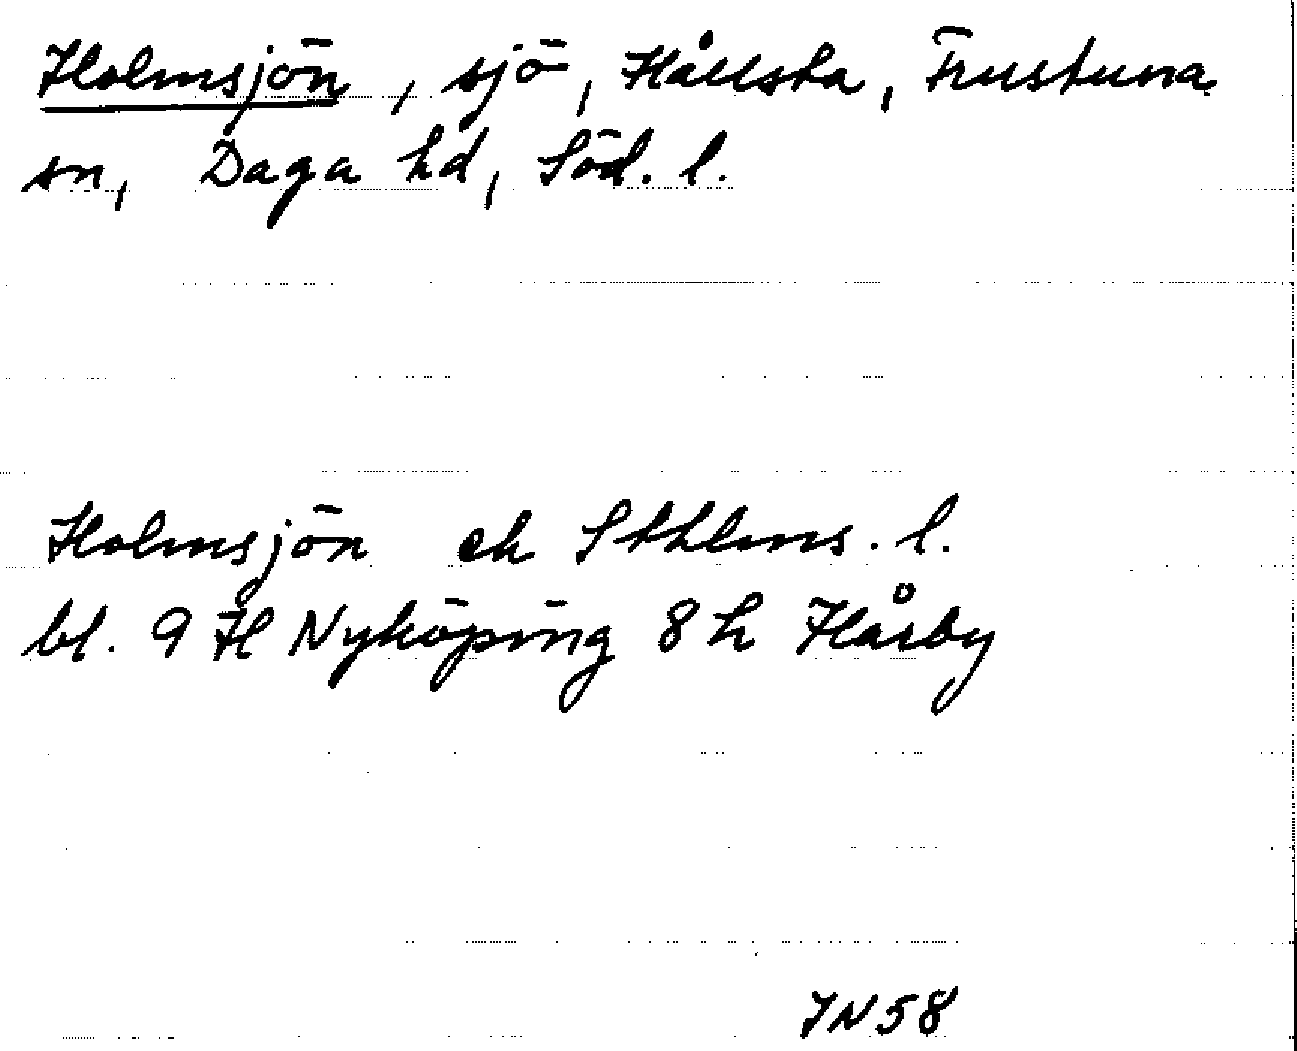 Holmsjön, sjö, Hållsta, Frustuna
sn, Daga hd, Söd. l.
Holmsjön ek Sthlms. l.
bl. 9 H Nyköping 8 h Hårby
JN 58